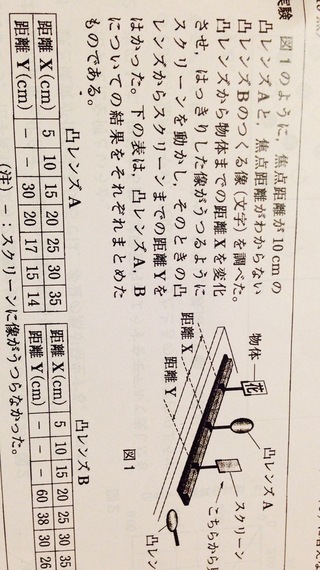 実験 図1のように，焦点距離が10cmの
凸レンズAと，焦点距離がわからない
凸レンズBのつくる像(文字)を調べた。
凸レンズから物体までの距離Xを変化
させ，はっきりした像がうつるように
スクリーンを動かし，そのときの凸
レンズからスクリーンまでの距離Yを
はかった。下の表は，凸レンズA，B
についての結果をそれぞれまとめた
ものである。
物体
花
凸レンズA
スクリーン
こちらから見
距離X
距離Y
凸レン
図1
凸レンズA
距離X(cm) 5 10 15 20 25 30 35
距離Y(cm) － － 30 20 17 15 14
凸レンズB
距離X(cm) 5 10 15 20 25 30 35
距離Y(cm) － － － 60 38 30 26
(注) －：スクリーンに像がうつらなかった。